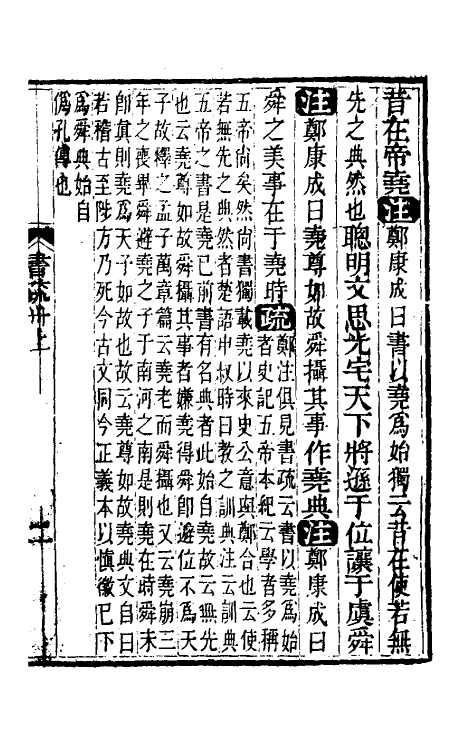 昔在帝堯注鄭康成曰書以堯爲始獨云昔在使若無
先之典然也聰明文思光宅天下將遜于位讓于虞舜
注鄭康成曰堯尊如故舜攝其事作堯典注鄭康成曰
舜之美事在于堯時疏鄭注俱見書疏云書以堯爲始
者史記五帝本紀云學者多稱
五帝尙矣然尙書獨載堯以來史公意與鄭合也云使
若無先之典然者楚語申叔時曰敎之訓典注云訓典
五帝之書是堯已前書有名典者此始自堯故云無先
也云堯尊如故舜攝其事者嫌堯得舜卽遜位不爲天
子故釋之孟子萬章篇云堯老而舜攝也又云堯崩三
年之喪畢舜避堯之子于南河之南是則堯在時舜未
卽眞則堯爲天子如故也故云堯尊如故堯典文自曰
若稽古至陟方乃死今古文同今正義本以愼徽已下
爲舜典始自
僞孔傳也
書疏卅上